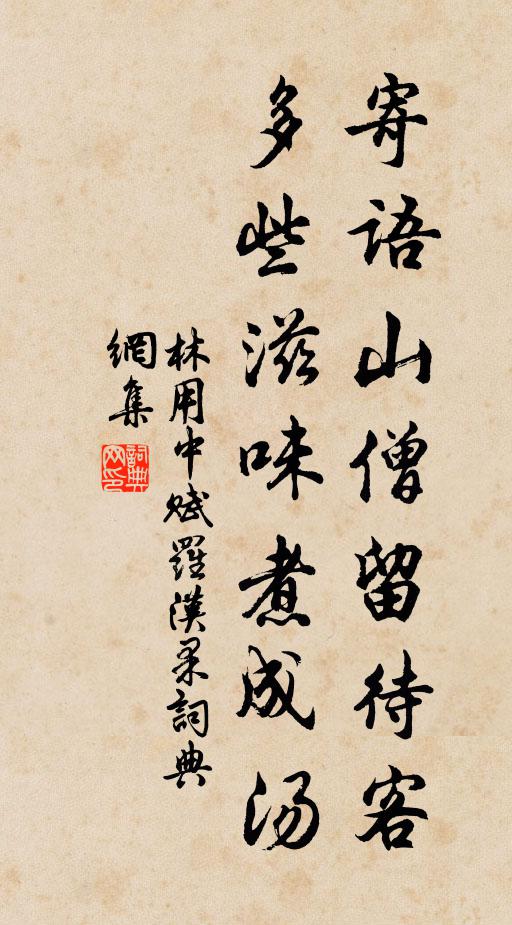 寄语山僧留待客
多些滋味煮成汤
林用中赋罗汉果词典
網集
詞典
网印